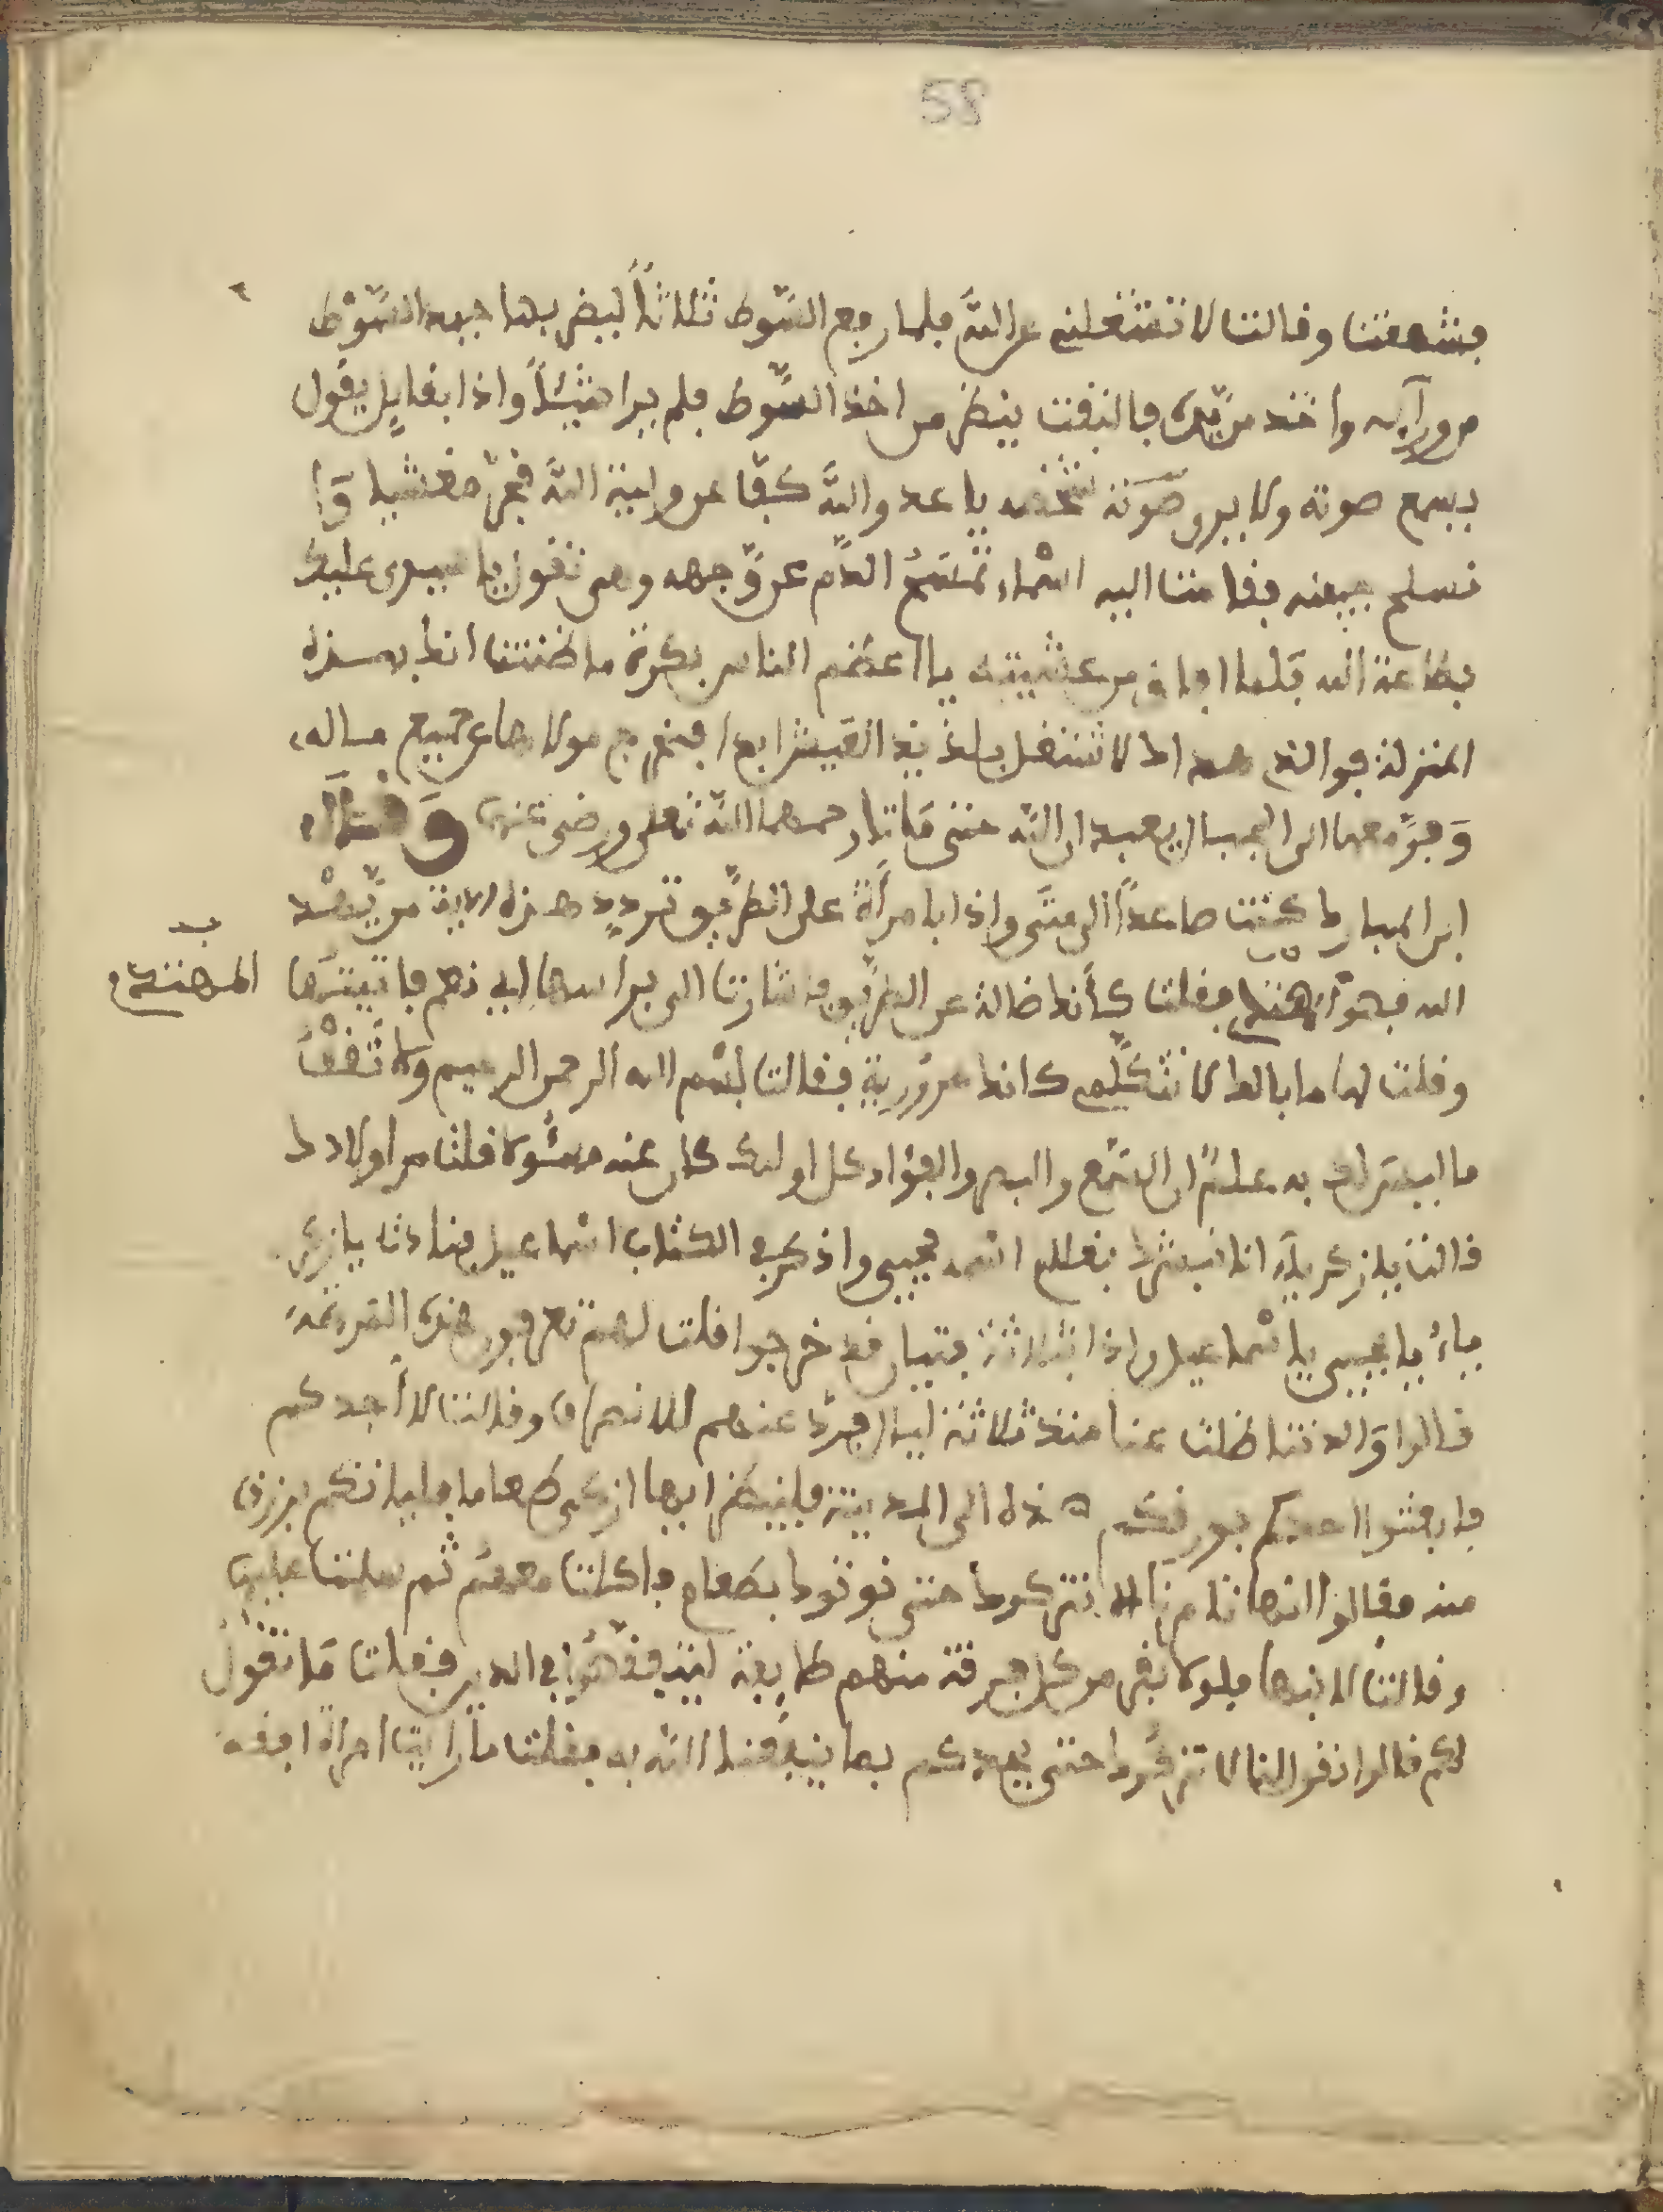 58
فشهقت وقالت لا تشغلني عن الله فلما رجع السّوط ثلاثاً ليضربها جبد السّوط
من ورآيه واخذ من يّده فالتفت ينظر من اخذ السّوط فلم ير احدا شيئاً واذا بقايل يقول
يسمع صوته ولا يرى شخصه يا عدو الله كفّا عن ولية الله فخرّ مغشيا
فقامت اليه اسماء تمسَحُ الدّم عن وّجهه وهي تقول يا سيدي عليك
بطاعة الله فلما افاق من غشيته يا اعظم الناس بكرة ما ظننت انك بهذه
المنزلة فوالله لا تشتغل بلذيذ العَيش ابدا فخرج مولاها عن جميع ماله
وَفرّ معها الى الجبال يعبدان الله حتى مَاتا رحمهما الله تعلى ورضى عنهما وَقال
ابن المبارك كنت صاعداً الى منّى واذا بامرأة على الطرّيق تردد هذه الاية من يّهد
الله فهو المهتد فقلت كأنك ضالة عن الطرّيق فاشارت الي براسها اي نعم فاتيتها
المهتدي
وقلت لها ما بالك لا تتكلّمى كانك حرورية فقالت بسْم الله الرحمن الرحيم ولا تقْفُ
ما ليسَ لك به علمٌ ان السّمع والبصر والفؤاد كل اولئك كان عنه مسئولا قلت من اولادك
قالت يا زكرياء انا نبشرك بغلم اسمه يحيى واذكر فى الكتاب اسماعيل فناديت يا زكرى
ياء يا يحيى يا اسماعيل واذا بثلاثة فتيان قد خرجوا قلت لهم تعرفون هذه المرءة
قالوا وَالدتنا ظلت عنا منذ ثلاثة ليال وقالت لاأحدكم
فابعثوا احدكم بورقكم هذه الى المدينة فلينظر ايها ازكى طعاما فلياتكم برزق
منه فقالوا انها تامرنا لا نتركوك حتى نوتوك بطعام فاكلت معهم ثم سلمت عليها
وقالت لابنها فلولا نفر من كل فرقة منهم طايفة ليتفقهّوا في الدين فقلت مَا تقولُ
لكم قالوا تقول لنا لا نتركوك حتى بما ينفعنا الله به فقلت ما رايت امراة افقه